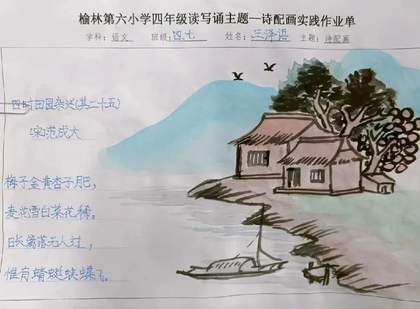 榆林第六小学四年级读写诵主题—诗配画实践作业单
学科：语文 班级：四.七 姓名：王泽语 主题：诗配画
四时田园杂兴(其二十五)
(宋)范成大
梅子金黄杏子肥，
麦花雪白菜花稀。
日长篱落无人过，
惟有蜻蜓蛱蝶飞。